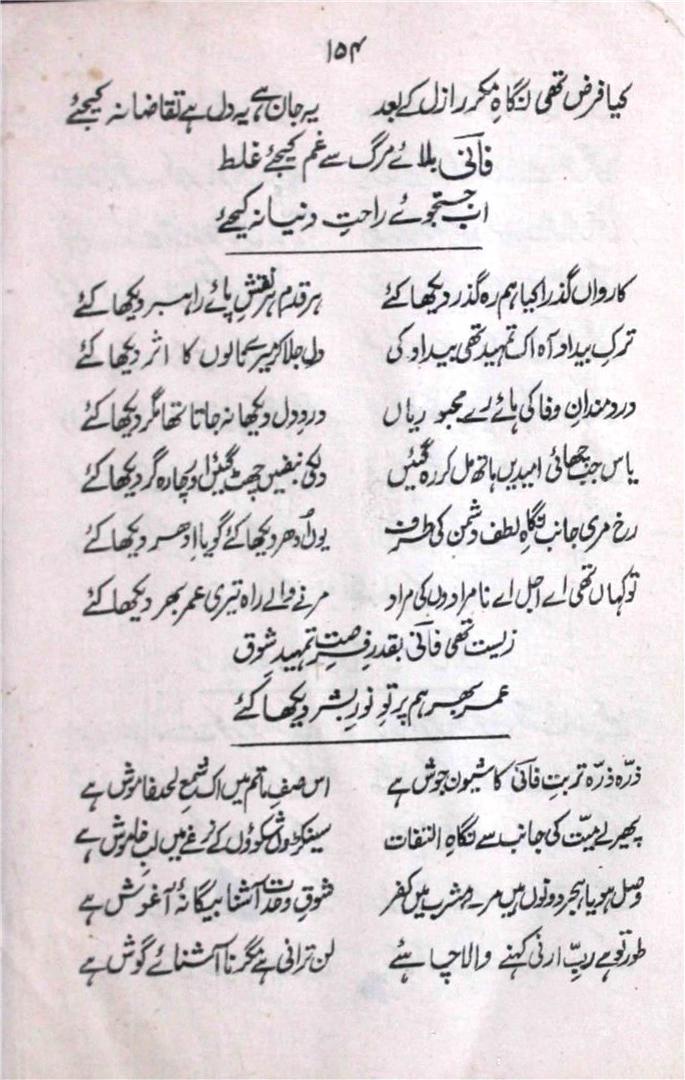 ۱۵۴
کیا فرض تھی نگاہِ مکرر ازل کے بعد یہ جان ہے یہ دل ہے تقاضا نہ کیجئے
فانی بلائے مرگ سے غم کیجئے غلط
اب جستجوئے راحتِ دنیا نہ کیجئے
کارواں گذرا کیا ہم رہ گذر دیکھا کئے ہر قدم ہر نقشِ پائے راہبر دیکھا کئے
ترکِ بیداد آہ اک تمہید تھی بیداد کی دل جلا کر میرے نالوں کا اثر دیکھا کئے
دردمندانِ وفا کی ہائے رے مجبوریاں دردِ دل دیکھا نہ جاتا تھا مگر دیکھا کئے
یاس جب چھائی امیدیں ہاتھ مل کر رہ گئیں دل کی نبضیں چھٹ گئیں اور چارہ گر دیکھا کئے
رخ مری جانب نگاہِ لطف دشمن کی طرف یوں اُدھر دیکھا کئے گویا اِدھر دیکھا کئے
تو کہاں تھی اے اجل اے نامرادوں کی مراد مرنے والے راہ تیری عمر بھر دیکھا کئے
زیست تھی فانی بقدرِ فرصتِ تمہیدِ شوق
عمر بھر ہم پرتوِ نورِ بشر دیکھا کئے
ذرّہ ذرّہ تربتِ فانی کا شیون جوش ہے اس صفِ ماتم میں اک شمعِ لحد خاموش ہے
پھیر لے میّت کی جانب سے نگاہِ التفات سینکڑوں شکوؤں کے نرغے میں لبِ خاموش ہے
وصل ہو یا ہجر دونوں ہیں مرے مشرب میں کفر شوقِ وحدت آشنا بیگانۂ آغوش ہے
طور تو ہے ربِّ ارنی کہنے والا چاہئے لن ترانی ہے مگر ناآشنائے گوش ہے